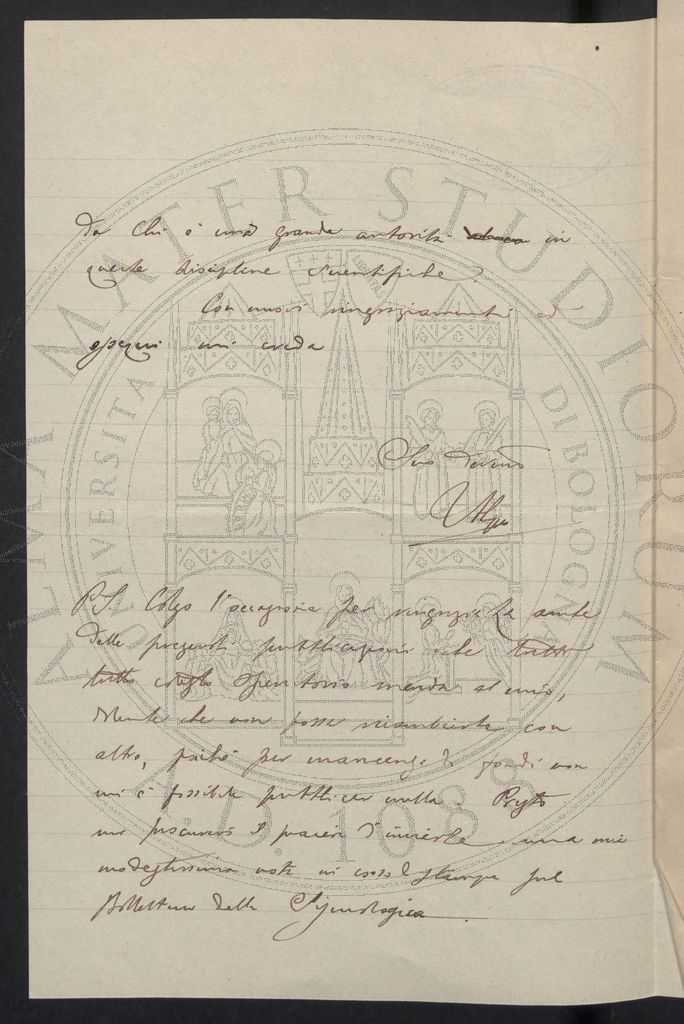 da chi è una grande autorità in
queste discipline scientifiche?
Con nuovi ringraziamenti ed
ossequi mi creda
Suo devmo
P.S. Colgo l'occasione per ringraziarla anche
delle pregiati pubblicazioni che
tutto Osservatorio manda al mio,
dolente che non possa ricambiarle con
altro, poiché per mancanza di fondi non
mi è possibile pubblicar nulla. Presto
mi procurerò il piacere d'inviarle una mia
modestissima nota in corso di stampa sul
Bollettino della Sismologica
ALMA MATER STUDIORUM
UNIVERSITÀ DI BOLOGNA
A.D. 1088